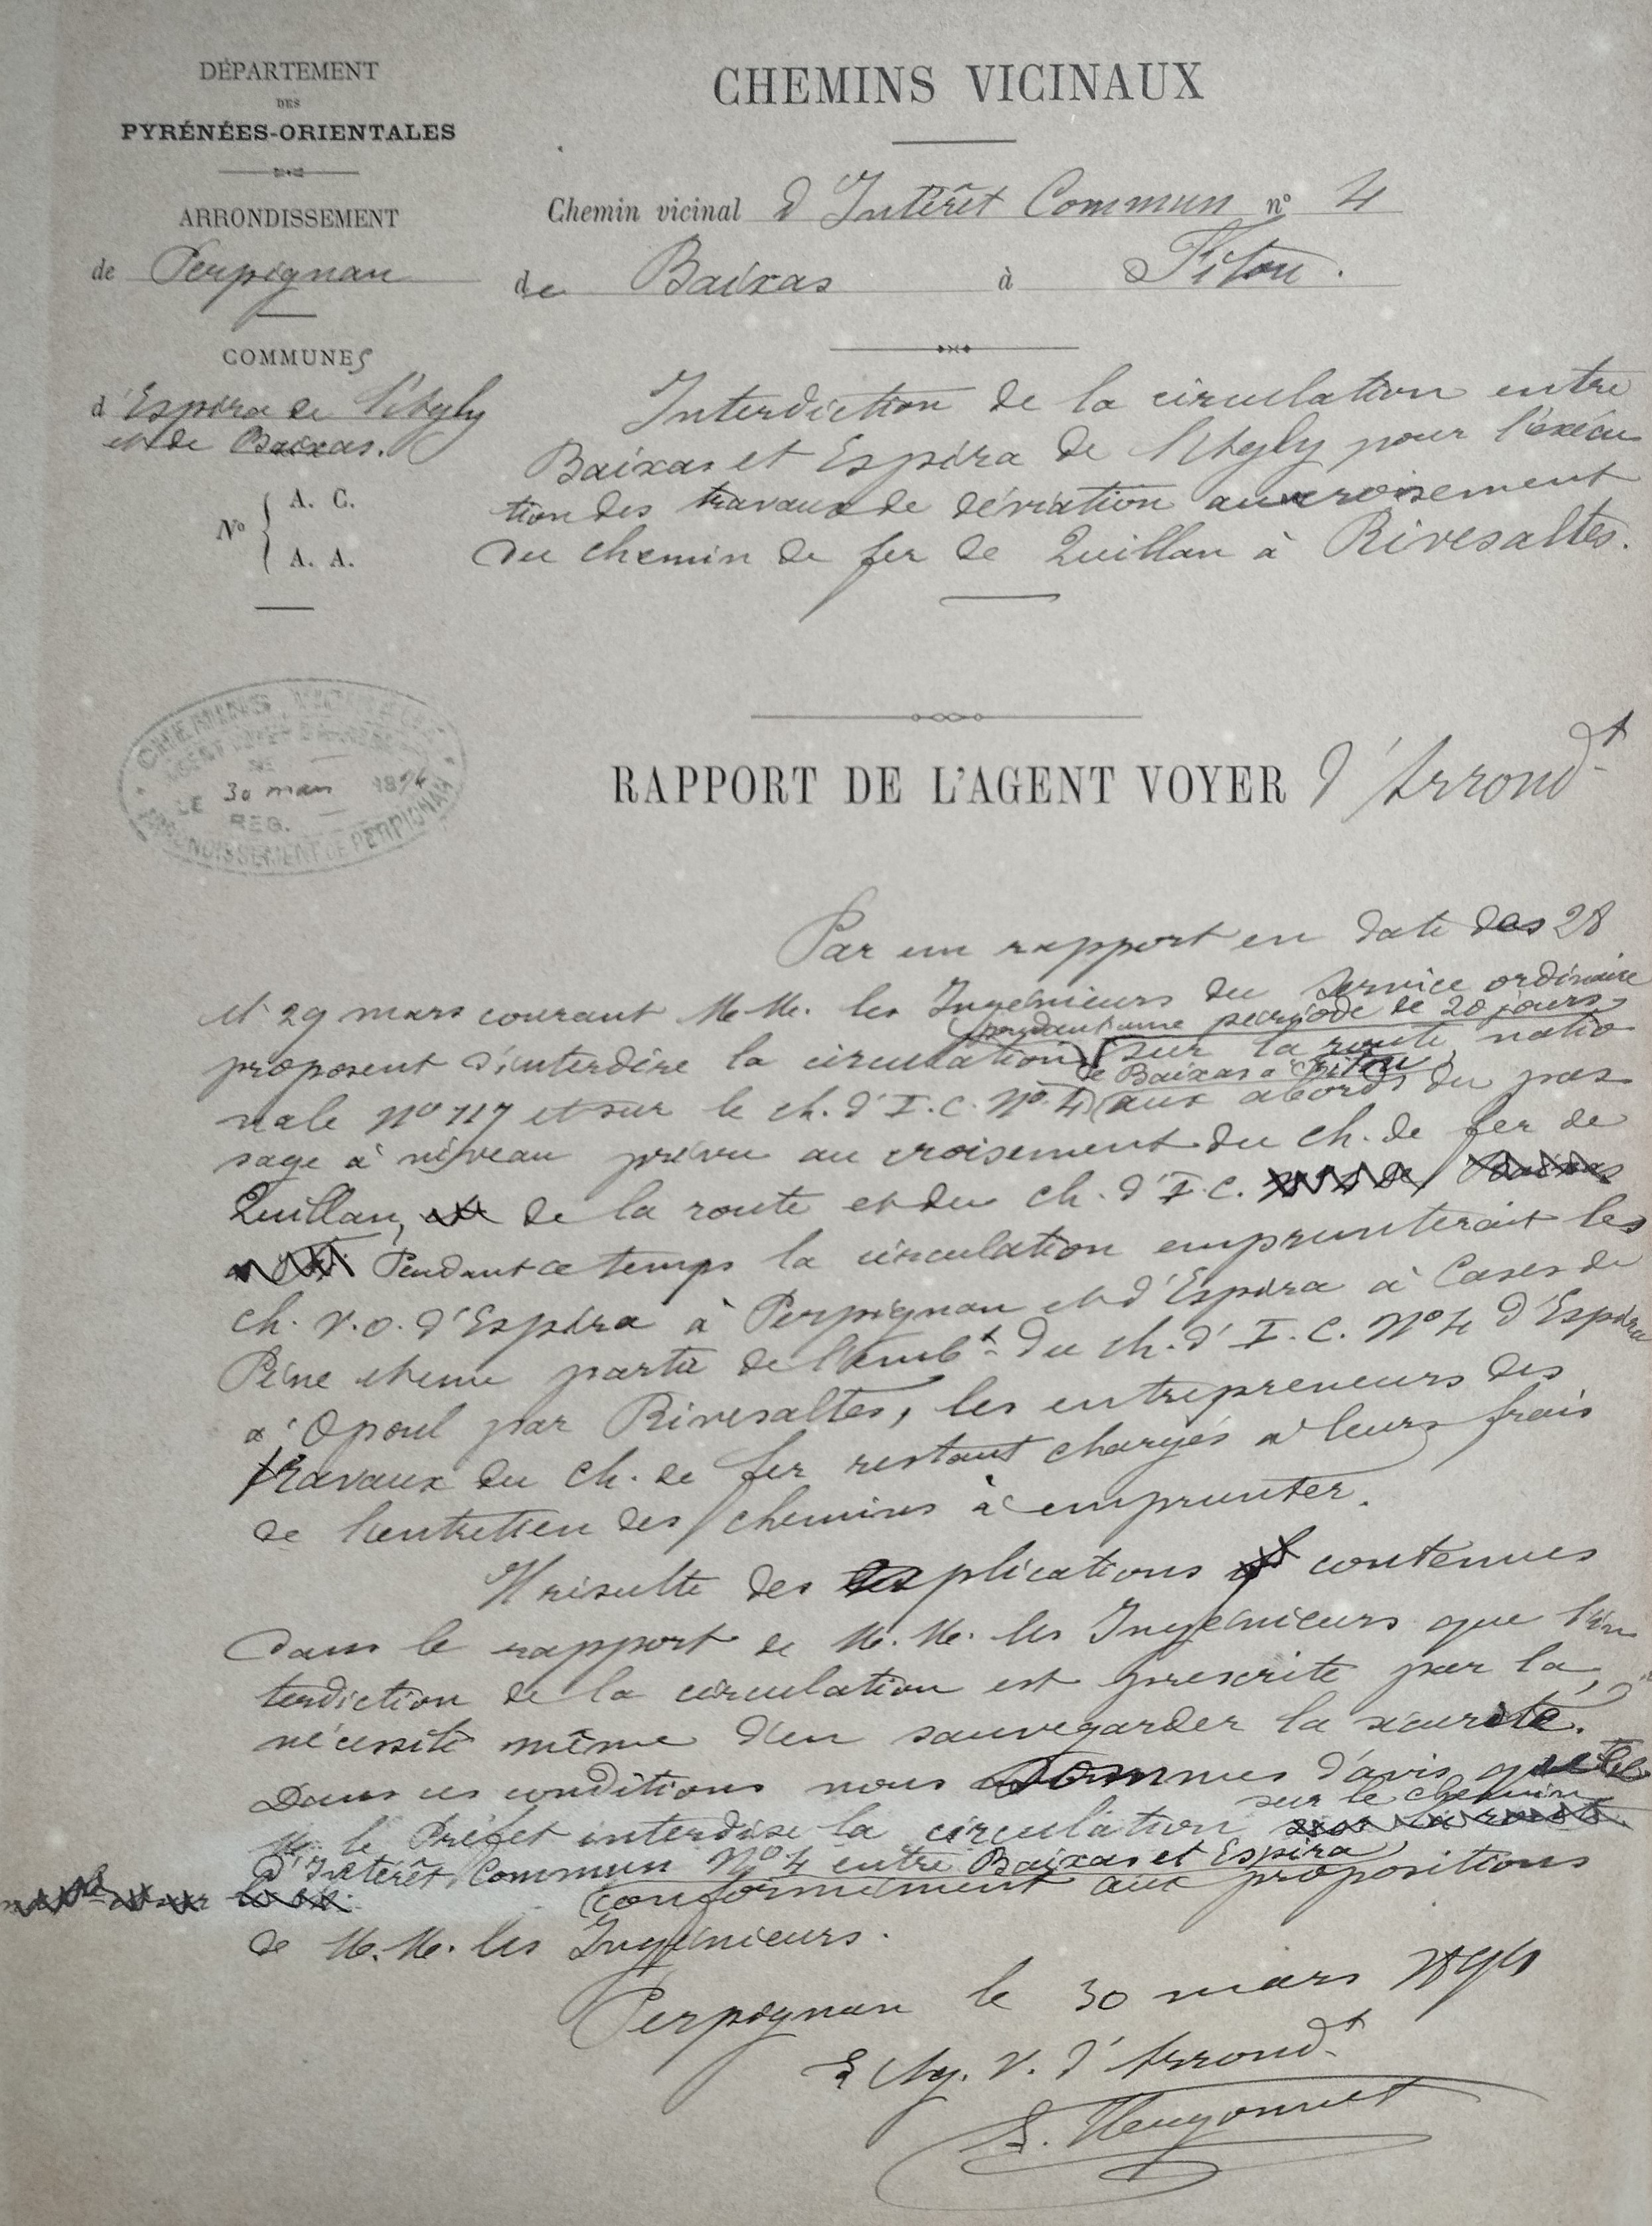 DÉPARTEMENT
DES
PYRÉNÉES-ORIENTALES
ARRONDISSEMENT
de Perpignan
COMMUNES
d'Espira de l'Agly
et de Baixas.
N° A. C.
A. A.
CHEMINS VICINAUX
Chemin vicinal d'Intérêt Commun n° 4
de Baixas à Fitou.
Interdiction de la circulation entre
Baixas et Espira de l'Agly pour l'exécu
tion des travaux de déviation au croisement
du chemin de fer de Quillan à Rivesaltes.
CHEMINS
LE 30 mars 1894
REG.
ARRONDISSEMENT DE PERPIGNAN
RAPPORT DE L'AGENT VOYER d'Arrondt
Par un rapport en date des 28
et 29 mars courant M.M. les Ingénieurs du Service ordinaire
pendant une période de 20 jours
proposent d'interdire la circulation sur la route natio
de Baixas à Fitou
nale N° 117 et sur le ch. d'I.C. N° 4 aux abords du pas
sage à niveau prévu au croisement du ch. de fer de
Quillan, de la route et du ch. d'I.C.
Pendant ce temps la circulation emprunterait les
ch. v.o. d'Espira à Perpignan et d'Espira à Cases de
Pène et une partie de l'embt du ch. d'I.C. N° 4 d'Espira
à Opoul par Rivesaltes, les entrepreneurs des
travaux du ch. de fer restant chargés à leurs frais
de l'entretien des chemins à emprunter.
Il résulte des explications contenues
dans le rapport de M.M. les Ingénieurs que l'in
terdiction de la circulation est prescrite par la
nécessité même d'en sauvegarder la sécurité.
Dans ces conditions nous sommes d'avis que
sur le chemin
M. le Préfet interdise la circulation
d'Intérêt Commun N° 4 entre Baixas et Espira
conformément aux propositions
de M.M. les Ingénieurs.
Perpignan le 30 mars 1894
L'Ag. V. d'Arrondt